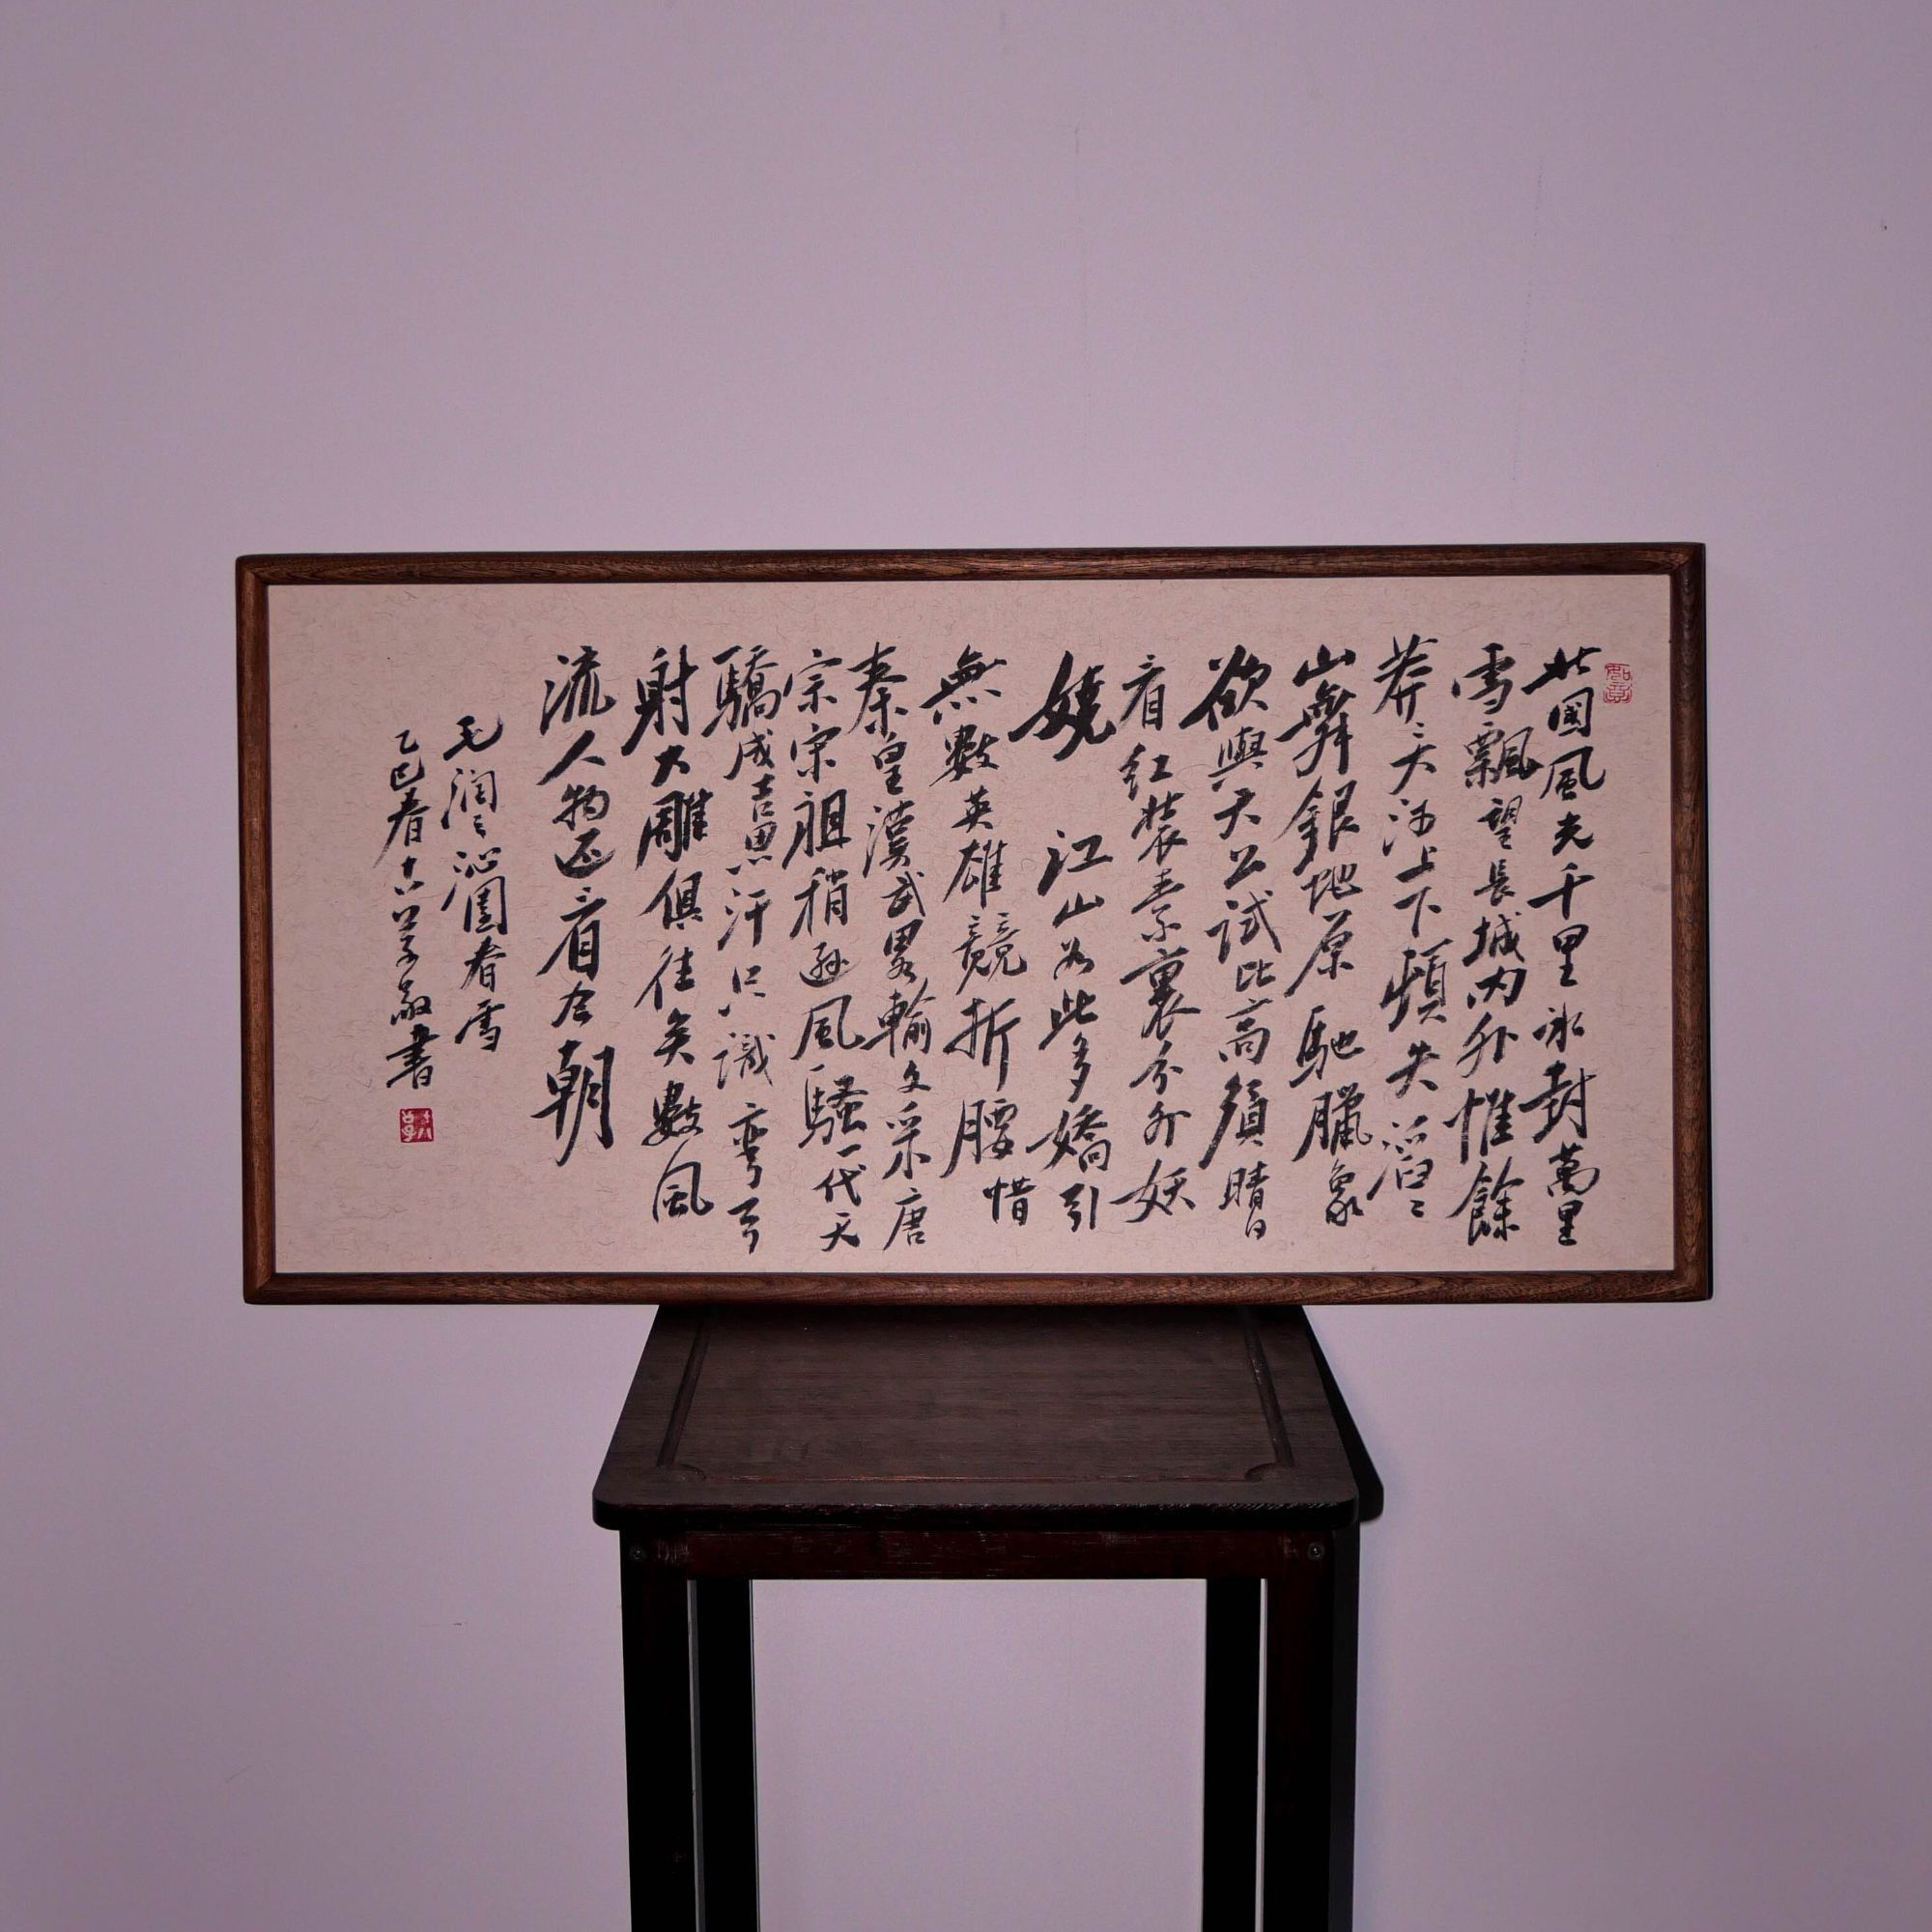 北國風光千里冰封萬里
雪飄望長城内外惟餘
莽〻大河上下頓失滔〻
山舞銀虵原馳臘象
欲與天公試比高須晴日
看红裝素裹分外妖
嬈 江山如此多嬌引
無數英雄競折腰惜
秦皇漢武畧輸文采唐
宗宋祖稍遜風騷一代天
驕成吉思汗只識彎弓
射大雕俱往矣數風
流人物還看今朝
毛润之沁園春雪
乙巳春敬書